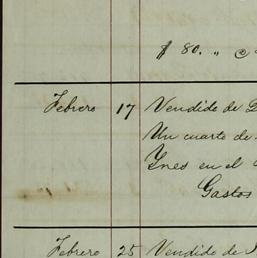 $ 80. „ @
Febrero 17 Vendido de
Un cuarto de
Ynes en el
Gastos
Febrero 25 Vendido de